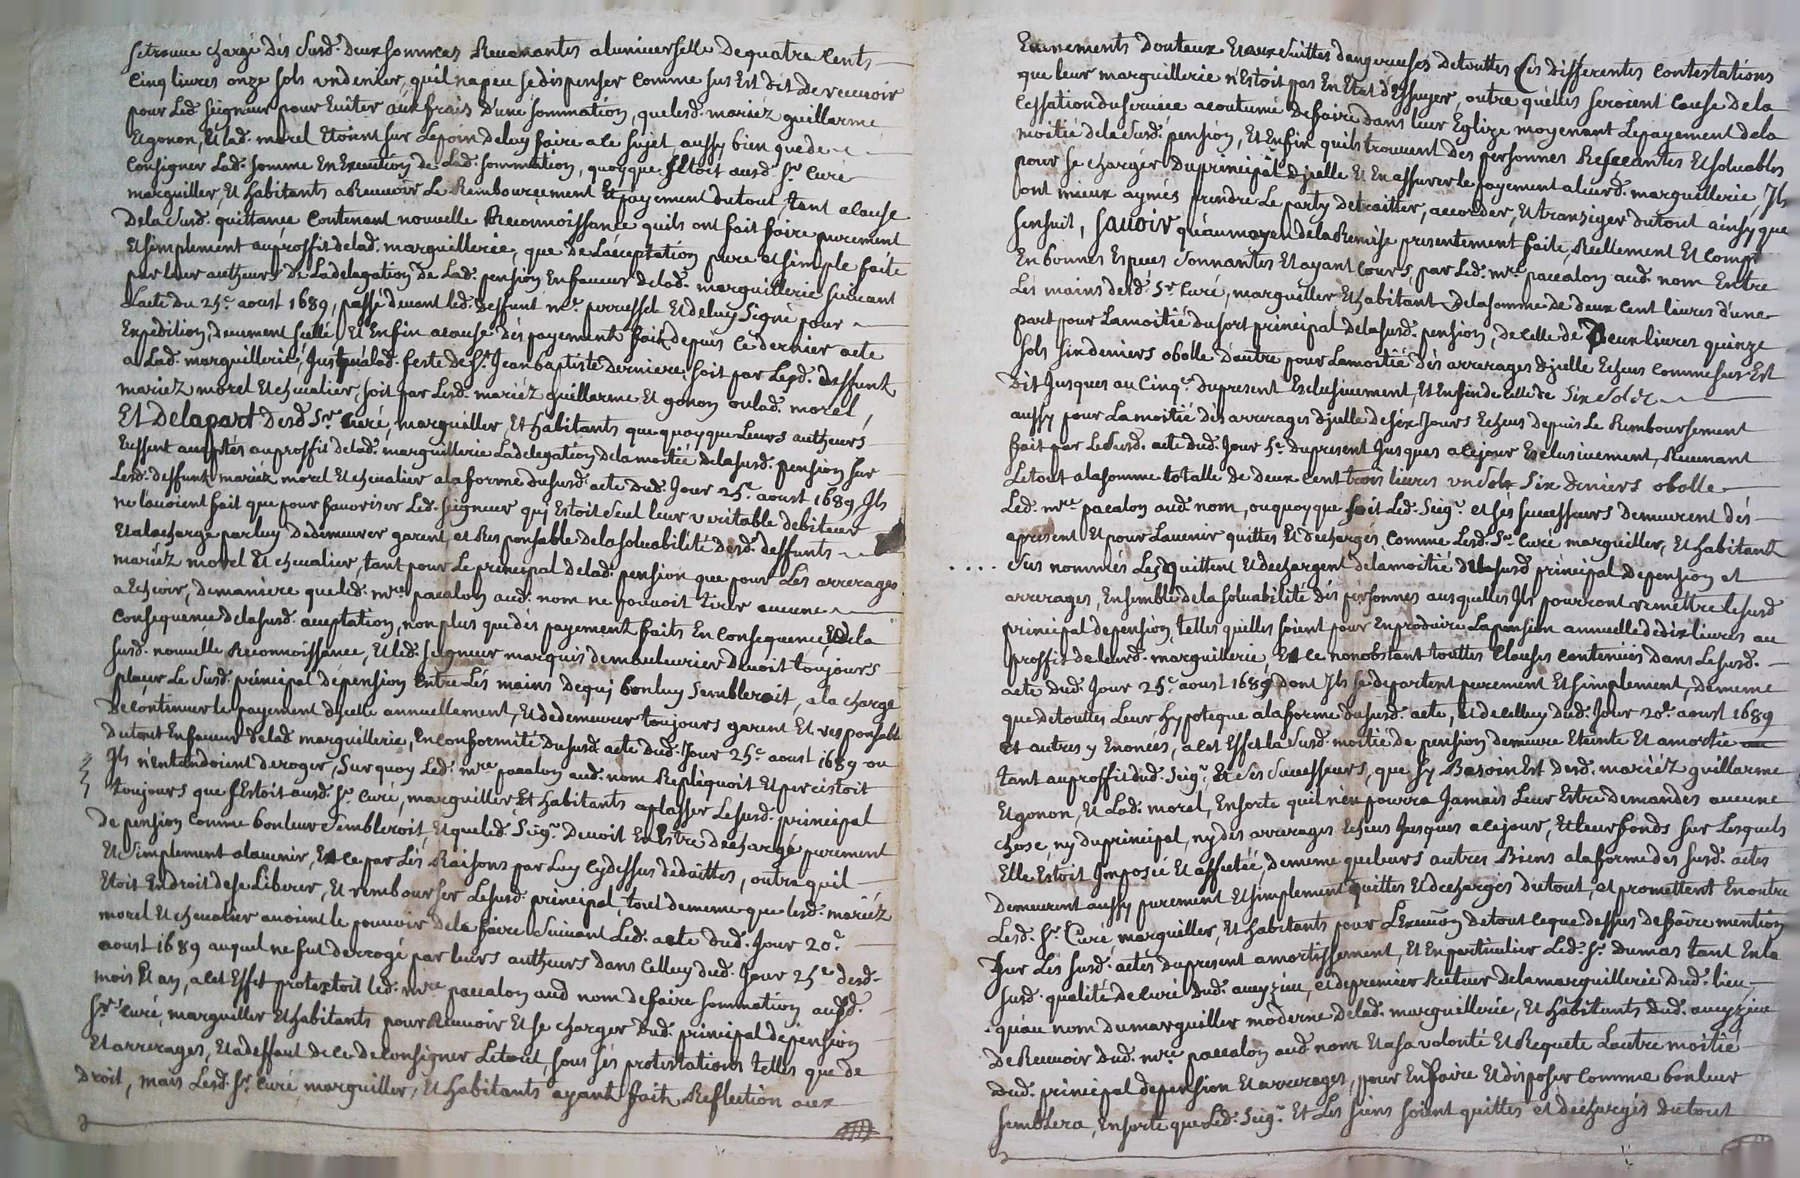 se trouve chargé des susd. deux sommes Revenantes a luniverselle de quatre cents
cinq livres onze sols un denier, qu'il na peu se dispenser comme sus Est dit de recevoir
pour Led. seigneur pour Eviter aux frais d'une sommation, que lesd. mariéz guillarme
Et gonon, Et lad. morel Etoient sur Le point de luy faire a ce sujet, aussy bien que de
Consigner Lad. somme En Execution de Lad. sommation, quoyque s'Etoit ausd. Sr. Curé
marguiller, Et habitants a Recevoir Le Remboursement Et payement du tout, tant a cause
De la susd. quittance contenant nouvelle Reconnoissance quils ont fait faire purement
Et simplement au proffit de lad. marguillerie, que de L'aceptation pure et simple faite
par leur autheurs de La delegation de Lad. pension En faveur de lad. marguillerie suivant
Lacte du 25e. aoust 1689, passé devant led. deffunt me. perrussel Et de luy Signé pour
Expedition, deuement scellé, Et Enfin a cause des payement fait depuis ce dernier acte
a Lad. marguillerie, Jusqua lad. feste de St. Jean baptiste derniere, soit par Lesd. deffunt
mariéz morel Et chevalier, soit par Lesd. mariéz guillarme Et gonon ou lad. morel,
Et De la part Desd. Srs. Curé, marguiller, Et habitants que quoyque Leurs autheurs
Eussent aceptés au proffit de lad. marguillerie La delegation de la moitié de la susd. pension sur
Lesd. deffunt mariéz morel Et chevalier a la forme du susd. acte dud. Jour 25e. aoust 1689, Ils
ne l'avoient fait que pour favoriser Led. seigneur qui Estoit seul leur veritable debiteur
Et a la charge par luy de demeurer garent et Responsable de la solvabilité desd. deffunts
mariéz morel Et chevalier, tant pour Le principal de lad. pension que pour Les arrerages
a Echoir, de maniere que led. mre. pacalon aud. nom ne pouvoit tirer aucune
Consequence de la susd. aceptation, non plus que des payement faits En consequence, Et de la
susd. nouvelle Reconnoissance, Et led. seigneur marquis de maulevrier Devoit toujours
placer Le susd. principal de pension Entre Les mains de qui bon luy Sembleroit, a la charge
De Continuer le payement d'jcelle annuellement, Et de demeurer toujours garent Et responsable
du tout En faveur de lad. marguillerie, En conformité du susd. acte dud. Jour 25e. aoust 1689 ou
Ils n'entendoient deroger, Sur quoy Led. mre. pacalon aud. nom Repliquoit Et percistoit
toujours que s'Estoit ausd. Sr. Curé, marguiller Et habitants a placer Le susd. principal
de pension Comme bon leur Sembleroit, Et que led. Seigr. Devoit En Estre dechargé purement
Et Simplement a lavenir, Et ce par Les Raisons par Luy Cy dessus dedaittes, outre quil
Etoit En droit de se Liberer, Et rembourser Le susd. principal, tout de meme que lesd. mariéz
morel Et chevalier avoient le pouvoir de la faire Suivant Led. acte dud. Jour 20e.
aoust 1689 auquel ne fut derrogé par leurs autheurs dans celluy dud. Jour 25e. desd.
mois Et an, a cet Effet protestoit led. mre. pacalon aud nom de faire sommation ausd.
Srs. Curé, marguiller Et habitants pour Recevoir Et se charger dud. principal de pension
Et arrerages, Et a deffaut de ce De consigner Le tout, sous ses protestations telles que de
droit, mais Lesd. Sr. Curé, marguiller, Et habitants ayant fait Reflection aux
Evenements douteux Et aux Suittes dangereuses de touttes Ces differentes contestations
que leur marguillerie n'Estoit pas En Etat d'Essuyer, outre qu'elles seroient Cause de la
Cessation du service acoutumé de faire dans leur Eglize moyenant Le payement de la
moitié de la susd. pension, Et Enfin quils trouvent des personnes Resseantes Et solvables
pour se charger du principal d'jcelle Et En assurer le payement a leurd. marguillerie, Ils
ont mieux aymés prendre Le party de traitter, accorder, Et transiger du tout ainsy que
sensuit, Savoir qu'au moyen de la Remise presentement faite, Reellement Et comp.
En bonnes Especes Sonnantes Et ayant Cours, par Led. mre. pacalon aud. nom Entre
Les mains desd. Sr. Curé, marguiller Et habitant De la somme de deux Cent livres d'une
part pour La moitié du sort principal de la susd. pension, de celle de Deux livres quinze
sols six deniers obolle d'autre pour La moitié des arrerages d'jcelle Echeus comme sus Est
Dit Jusques au Cinqe. du present Exclusivement, Et Enfin de celle de Six sols
aussy pour La moitié des arrerages d'jcelle de six Jours Echeus depuis Le Remboursement
fait par Le susd. acte dud. Jour 5e. du present Jusques a ce jour Exclusivement, Revenant
Le tout a la somme totalle de deux Cent trois livres un sol Six deniers obolle
Led. mre. pacalon aud. nom, ou quoy que soit Led. Seigr. et ses successeurs demeurent des
apresent Et pour Lavenir quittes Et dechargés, Comme Lesd. Sr. Curé marguiller, Et habitants
.... Sus nommés Les quittent Et dechargent de la moitié de la susd principal de pension et
arrerages, Ensemble de la solvabilité des personnes ausquelles Ils pourront remettre le susd
principal de pension, telles qu'elles soient pour En produire La pension annuelle de dix livres au
proffit de leurd. marguillerie, Et ce nonobstant touttes Clauses contenües dans Le susd.
acte dud. Jour 25e. aoust 1689 dont Ils se departent purement Et simplement, de meme
que de touttes Leur hypoteque a la forme du susd. acte, et de celluy dud. Jour 20e. aoust 1689
et autres y Enoncés, a cet Effet la susd. moitié de pension demeure Eteinte Et amortie
tant au proffit dud. Seigr. Et Ses Successeurs, que sy Besoin Est desd. mariéz guillarme
Et gonon, Et Lad. morel, En sorte quil n'en pourra Jamais Leur Estre demandes aucune
chose, ny du principal, ny des arrerages Echeus Jusques a ce jour, Et leur fonds sur Lesquels
Elle Estoit Jmposée Et affectée, de meme que leurs autres Biens a la forme des susd. actes
Demeurent aussy purement Et simplement quittes Et dechargés du tout, et promettent En outre
Lesd. Sr. Curé, marguiller, Et habitants pour L'execuōn de tout ce que dessus de faire mention
Sur Les susd. actes du present amortissement, Et En particulier Led. Sr. Dumas tant En la
susd. qualité de Curé dud. aveyzieu, et de premier Recteur de la marguillerie dud. lieu
qu'au nom du marguiller moderne de lad. marguillerie, Et habitants dud. aveyzieu
De Recevoir dud. mre. pacalon aud. nom Et a sa volonté Et Requete Lautre moitié
dud. principal de pension Et arrerages, pour En faire Et disposer comme bon leur
semblera, En sorte que Led. Seigr. Et Les siens soient quittes et dechargés du tout